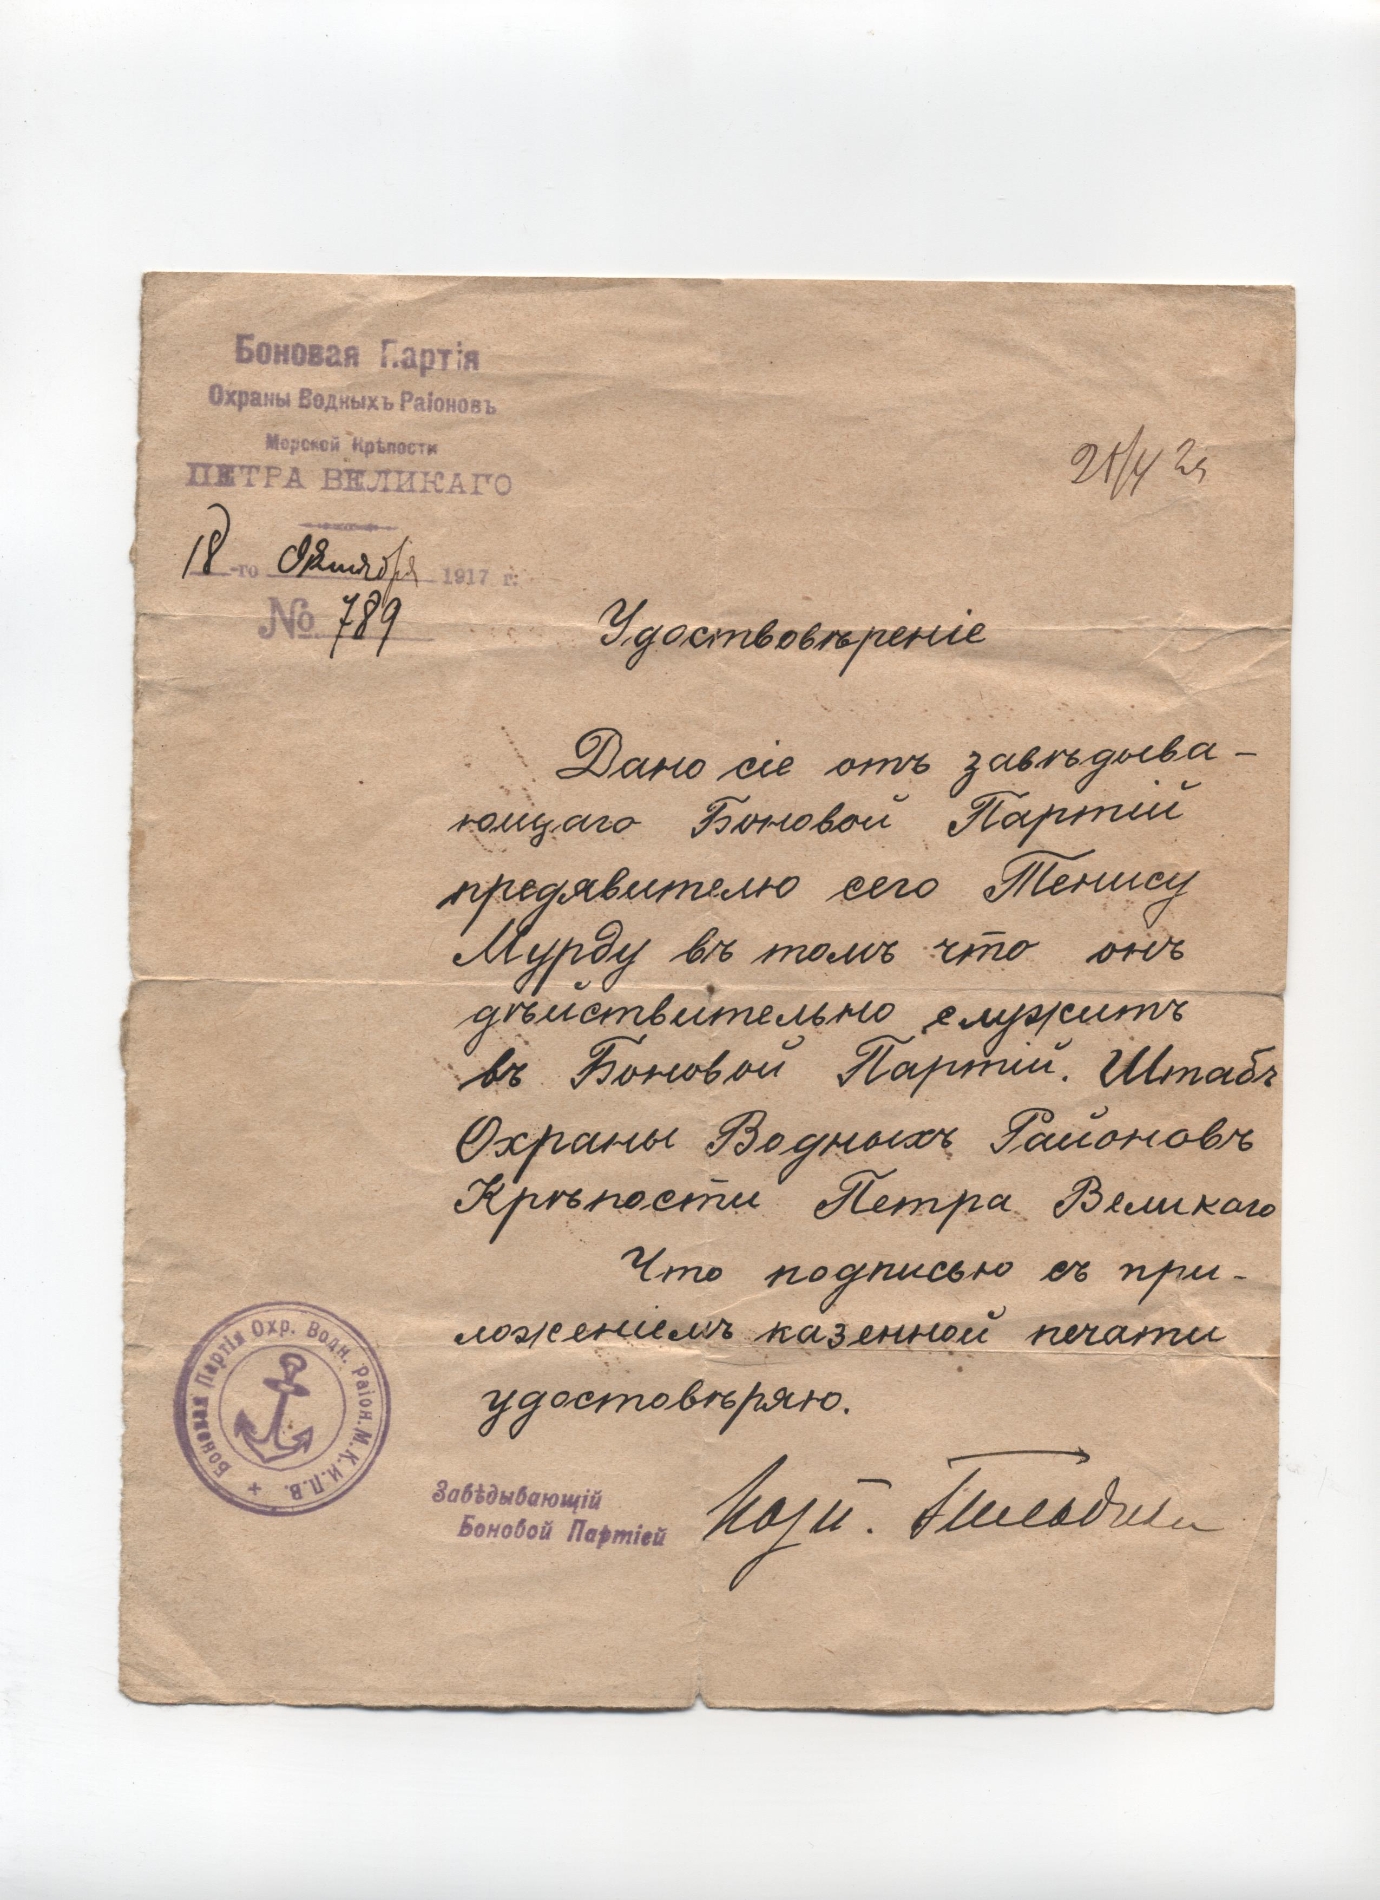 Боновая Партія
Охраны Водныхъ Раіоновъ
Морской Крѣпости
ПЕТРА ВЕЛИКАГО
18-го Октября 1917 г.
№ 789
Удоствовѣреніе
Дано сіе отъ завѣдыва-
ющаго Боновой Партій
предявителю сего Тенису
Мурду въ томъ что онъ
дѣйствительно служитъ
въ Боновой Партій. Штабъ
Охраны Водныхъ Районовъ
Крѣпости Петра Великаго
Что подписью съ при-
ложеніемъ казенной печати
удостовѣряю.
Боновая Партія Охр. Водн. Раіон. М. К. И. П. В.
Завѣдывающій
Боновой Партіей